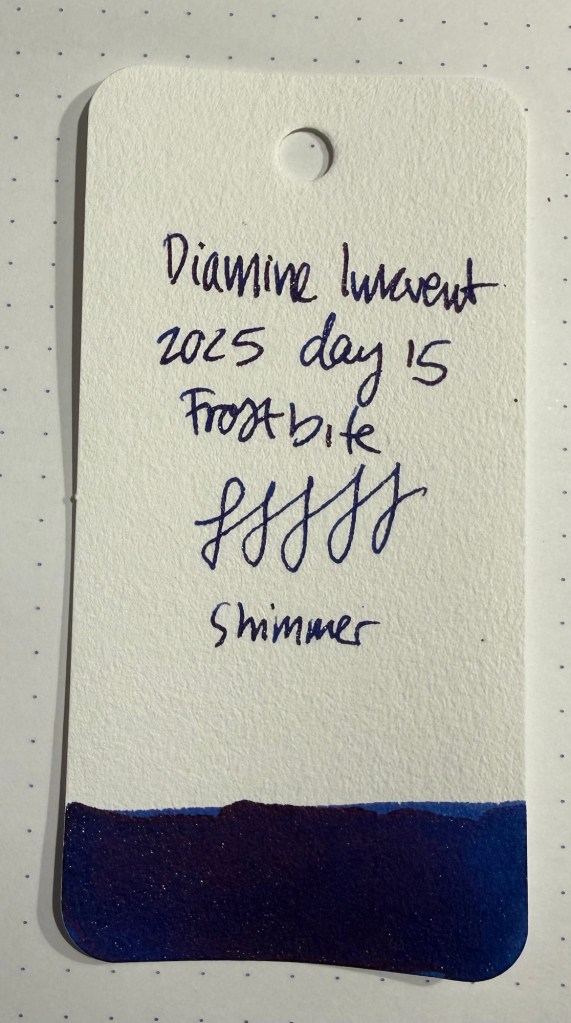 Diamine Inkvent
2025 day 15
Frostbite
Shimmer